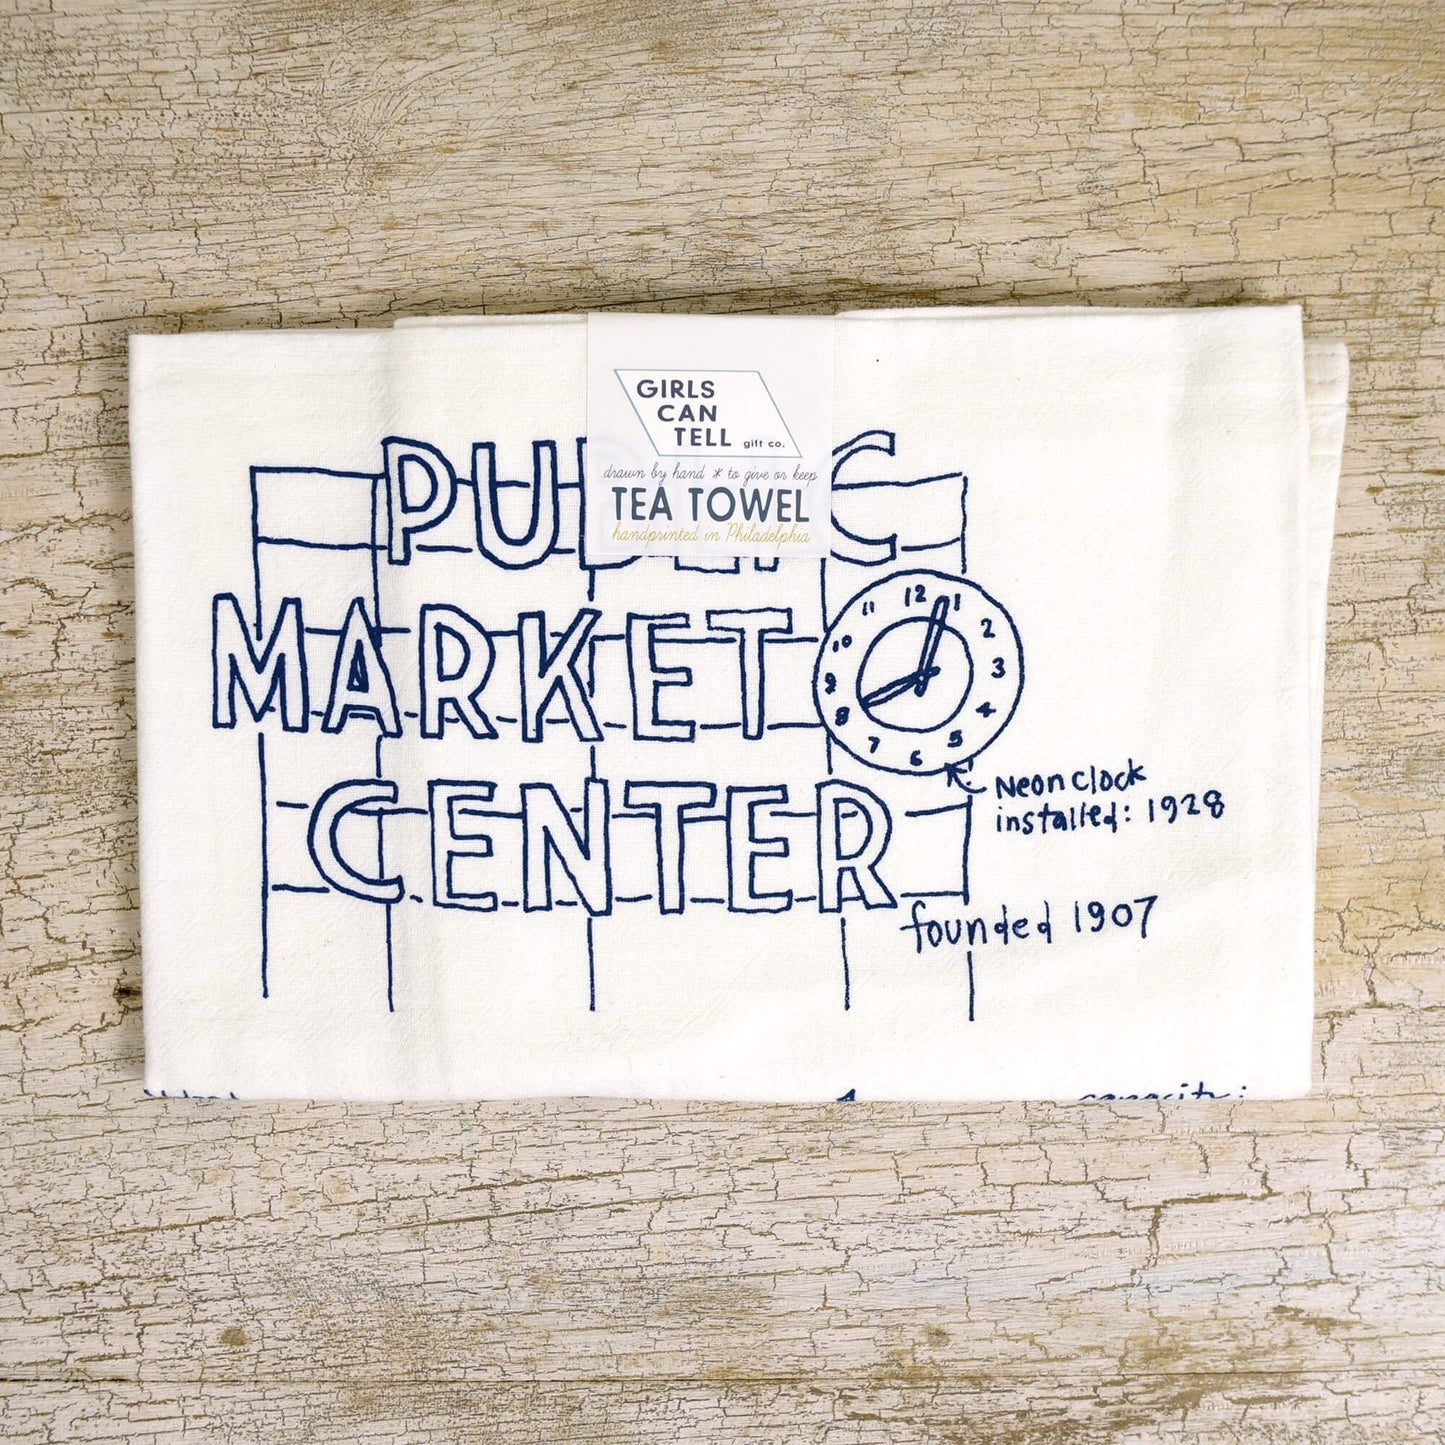 GIRLS
CAN
TELL gift co.
drawn by hand * to give or keep
TEA TOWEL
handprinted in Philadelphia
PUBLIC
MARKET
CENTER
12 1 2 3 4 5 6 7 8 9 10 11
Neon clock
installed: 1928
founded 1907
capacity: